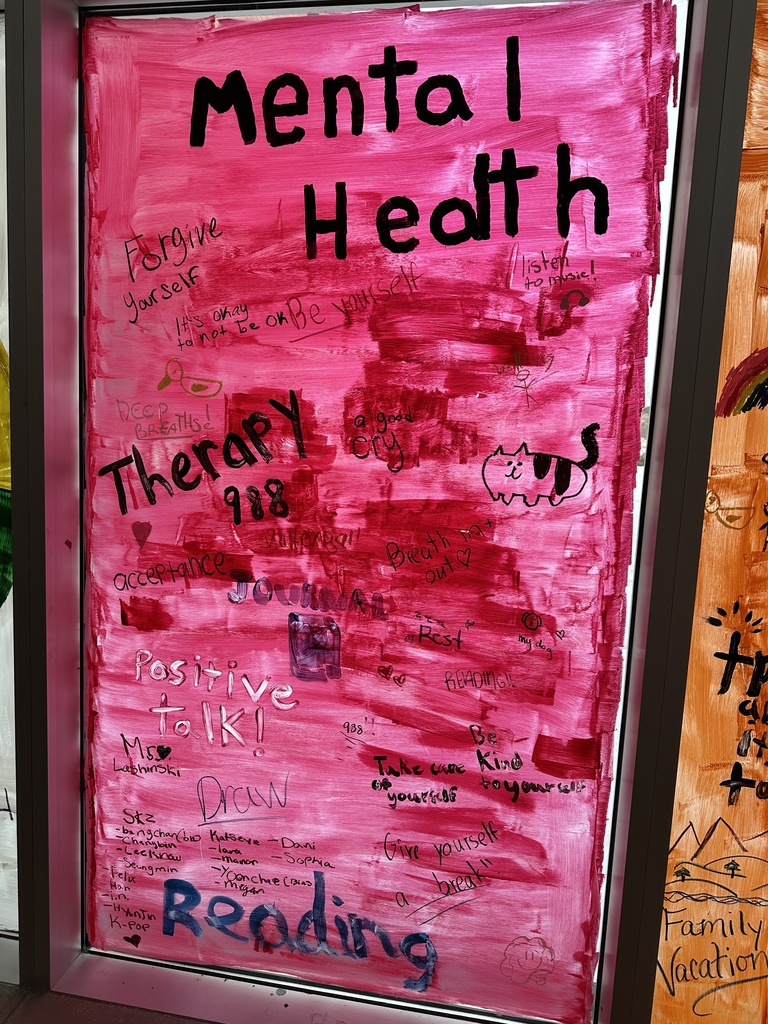 Mental
Health
Forgive
yourself
listen
to music!
It's okay
to not be ok
Be yourself
DEEP
BREATHS!
Therapy
988
a good
cry
Volleyball
Breath in +
out
acceptance
JOURNAL
Rest
my dog
READING!!
Positive
talk!
988!!
Ms.
Lashinski
Take care
of
yourself
Be
Kind
to yourself
Draw
Skz
-bangchan
-Changbin
-Leeknow
-Seungmin
-Felix
-Han
-I.n.
-Hyunjin
K-pop
Katseye
-lara
-manon
-Yoonchae
-megan
-Dani
-Sophia
Give yourself
a break"
Reading
Family
Vacation